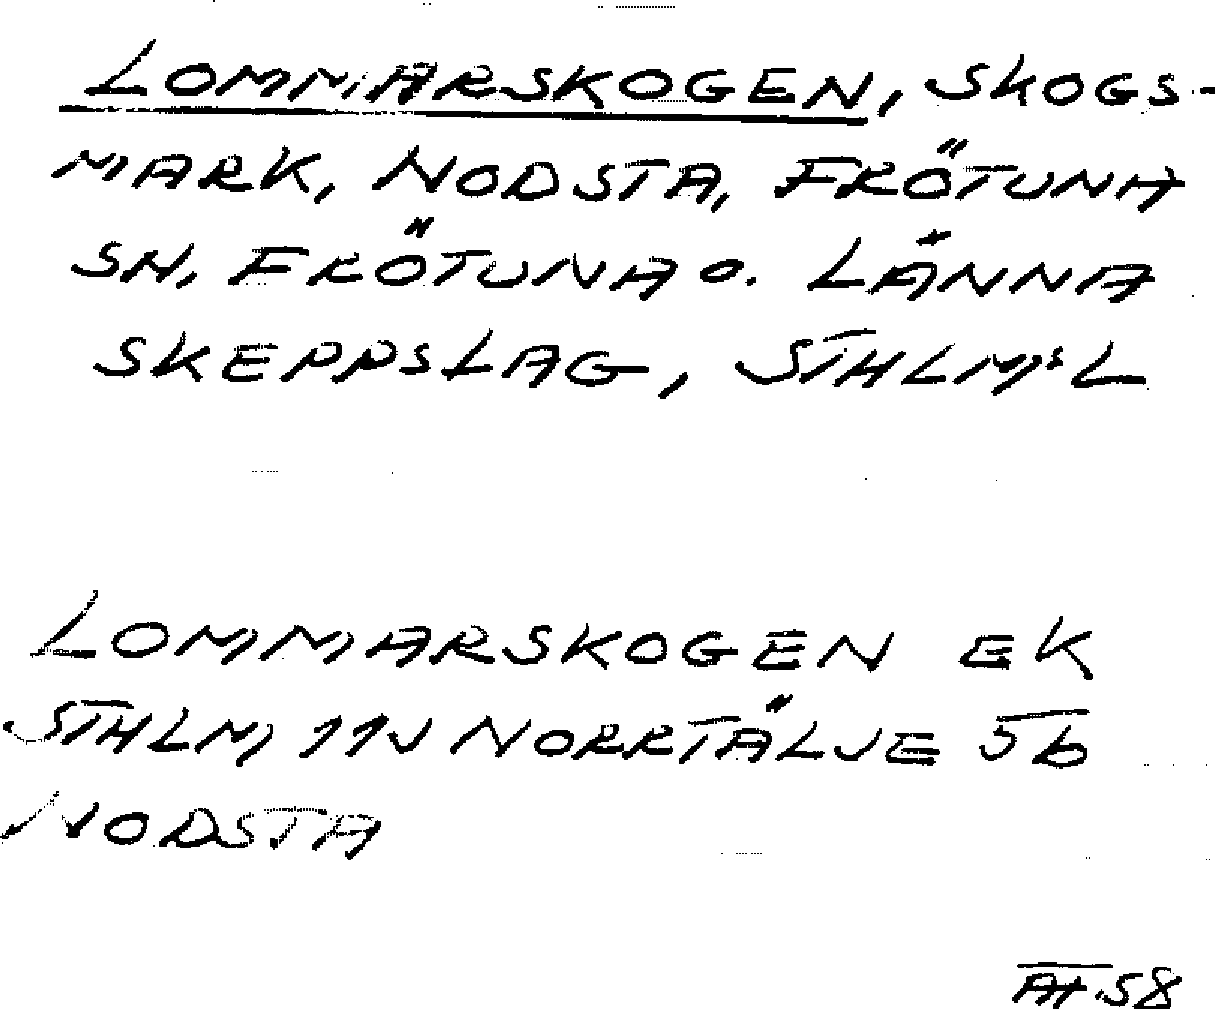 LOMMARSKOGEN, SKOGS-
MARK, NODSTA, FRÖTUNA
SN, FRÖTUNA O. LÄNNA
SKEPPSLAG, STHLMS L
LOMMARSKOGEN EK
STHLM 11J NORRTÄLJE 5b
NODSTA
AH 58